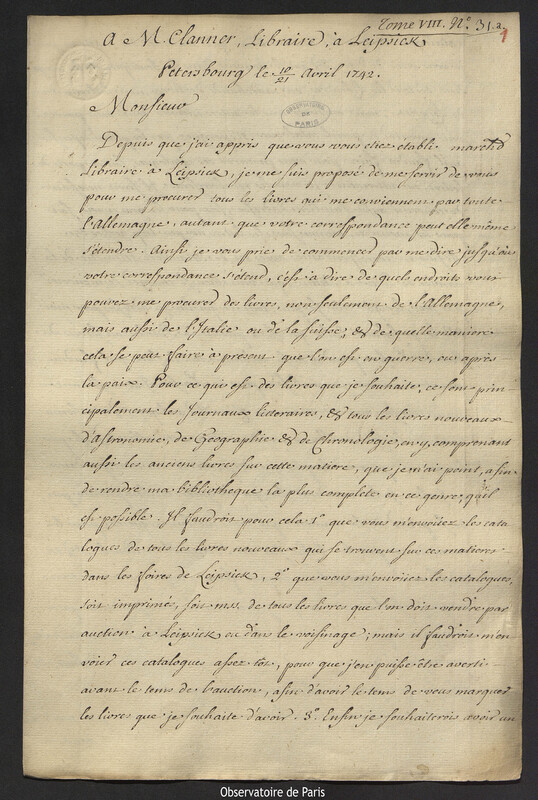 Tome VIII. N.º 31.a.
1
A M. Clanner, Libraire, à Leipsick
Petersbourg le 10/21 Avril 1742.
OBSERVATOIRE
DE
PARIS
Monsieur
Depuis que j'ai appris que vous vous etiez établi march.d
Libraire à Leipsick, je me suis proposé de me servir de vous
pour me procurer tous les livres qui me conviennent par toute
l'Allemagne, autant que votre correspondance peut elle même
s'étendre. Ainsi je vous prie de commencer par me dire jusqu'où
votre correspondance s'étend, c'est à dire de quels endroits vous
pouvez me procurer des livres, non seulement de l'Allemagne,
mais aussi de l'Italie ou de la Suisse; & de quelle maniere
cela se peut faire à présent que l'on est en guerre, ou après
la paix. Pour ce qui est des livres que je souhaite, ce sont prin
cipalement les Journaux litteraires, & tous les livres nouveaux
d'Astronomie, de Geographie & de Chronologie, en y comprenant
aussi les anciens livres sur cette matiere, que je n'ai point, afin
de rendre ma bibliotheque la plus complete en ce genre, qu'il
est possible. Il faudroit pour cela 1º que vous m'envoiiez les cata
logues de tous les livres nouveaux qui se trouvent sur ces matieres
dans les foires de Leipsick, 2º que vous m'envoiiez les catalogues,
soit imprimé, soit mss. de tous les livres que l'on doit vendre par
auction à Leipsick ou dans le voisinage; mais il faudroit m'en
voier ces catalogues assez tôt, pour que j'en puisse être averti
avant le tems de l'auction, afin d'avoir le tems de vous marquer
les livres que je souhaite d'avoir. 3º. Enfin je souhaiterois avoir un
Observatoire de Paris